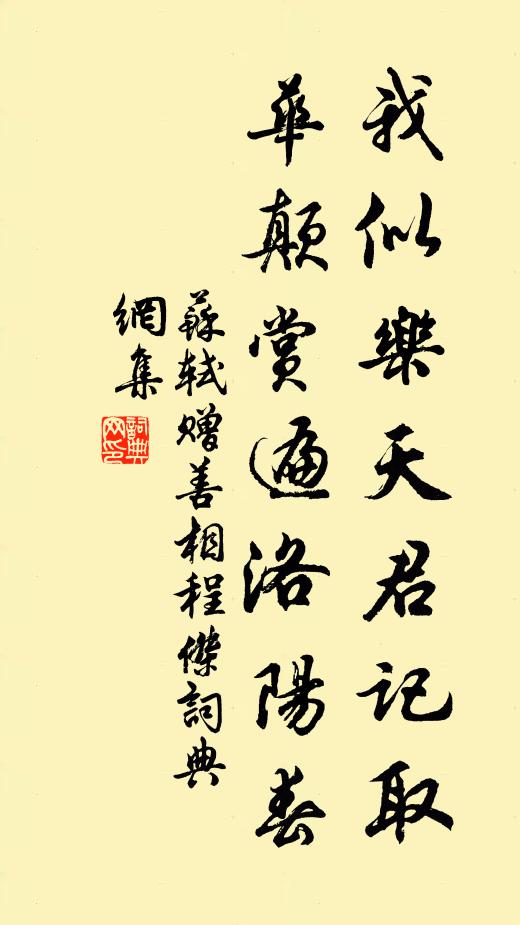 我似樂天君記取
華顛賞遍洛陽春
蘇軾贈善相程傑詞典
網集
詞典
网印